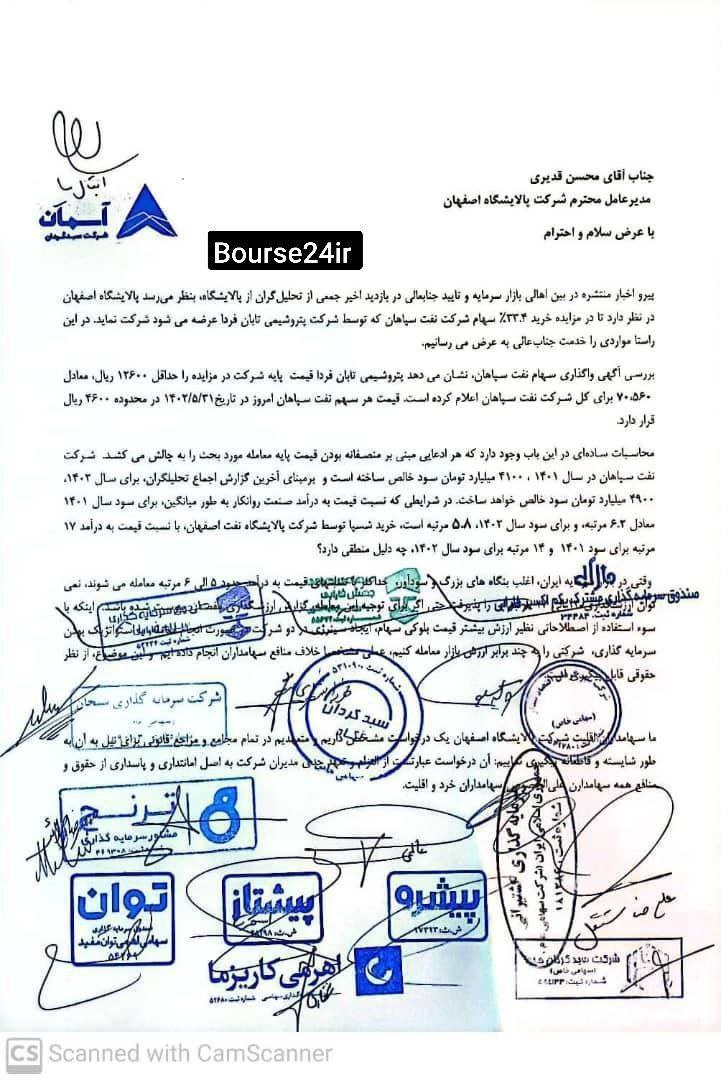 جناب آقای محسن قدیری
مدیرعامل محترم شرکت پالایشگاه اصفهان
با عرض سلام و احترام
آسمان
شرکت سبدگردان
Bourse24ir
پیرو اخبار منتشره در بین اهالی بازار سرمایه و تایید جنابعالی در بازدید اخیر جمعی از تحلیل‌گران از پالایشگاه، بنظر می‌رسد پالایشگاه اصفهان
در نظر دارد تا در مزایده خرید ۳۳.۴٪ سهام شرکت نفت سپاهان که توسط شرکت پتروشیمی تابان فردا عرضه می شود شرکت نماید. در این
راستا مواردی را خدمت جناب‌عالی به عرض می رسانیم.
بررسی آگهی واگذاری سهام نفت سپاهان، نشان می دهد پتروشیمی تابان فردا قیمت پایه شرکت در مزایده را حداقل ۱۲۶۰۰ ریال، معادل
۷۰،۵۶۰ برای کل شرکت نفت سپاهان اعلام کرده است. قیمت هر سهم نفت سپاهان امروز در تاریخ ۱۴۰۲/۵/۳۱ در محدوده ۴۶۰۰ ریال
قرار دارد.
محاسبات ساده‌ای در این باب وجود دارد که هر ادعایی مبنی بر منصفانه بودن قیمت پایه معامله مورد بحث را به چالش می کشد. شرکت
نفت سپاهان در سال ۱۴۰۱ ، ۴۱۰۰ میلیارد تومان سود خالص ساخته است و برمبنای آخرین گزارش اجماع تحلیلگران، برای سال ۱۴۰۲،
۴۹۰۰ میلیارد تومان سود خالص خواهد ساخت. در شرایطی که نسبت قیمت به درآمد صنعت روانکار به طور میانگین، برای سود سال ۱۴۰۱
معادل ۶.۲ مرتبه، و برای سود سال ۱۴۰۲، ۵.۸ مرتبه است، خرید شسپا توسط شرکت پالایشگاه نفت اصفهان، با نسبت قیمت به درآمد ۱۷
مرتبه برای سود ۱۴۰۱ و ۱۴ مرتبه برای سود سال ۱۴۰۲، چه دلیل منطقی دارد؟
وقتی در ایران، اغلب بنگاه های بزرگ و سودآور حداکثر با قیمت به درآمد حدود ۵ الی ۶ مرتبه معامله می شوند، نمی
صندوق سرمایه گذاری مشترک یکم
توان را پذیرفت حتی اگر برای توجیه این معامله گزارش شده باشد. اینکه با
سوء استفاده از اصطلاحاتی نظیر ارزش بیشتر قیمت بلوکی سهام، ایجاد سینرژی در دو شرکت در صورت انجام استراتژیک بودن
سرمایه گذاری، شرکتی را به چند برابر ارزش بازار معامله کنیم، عملی مشخصا خلاف منافع سهامداران انجام داده ایم و این موضوع، از نظر
حقوقی قابل
شرکت سرمایه گذاری سبحان
سبد گردان
(سهامی خاص)
ما سهامداران اقلیت شرکت پالایشگاه اصفهان یک درخواست مشخص داریم و متعهدیم در تمام مجامع و مراجع قانونی برای نیل به آن به
طور شایسته و قاطعانه پیگیری نماییم: آن درخواست عبارتست از الزام و تعهد جدی مدیران شرکت به اصل امانتداری و پاسداری از حقوق و
منافع همه سهامداران سهامداران خرد و اقلیت.
ترنج
مشاور سرمایه گذاری
توان
سهامی اهرمی توان مفید
پیشتاز
پیشرو
ش.ث: ۱۷۲۹۳
اهرمی کاریزما
شرکت سبدگردان
(سهامی خاص)
CS Scanned with CamScanner